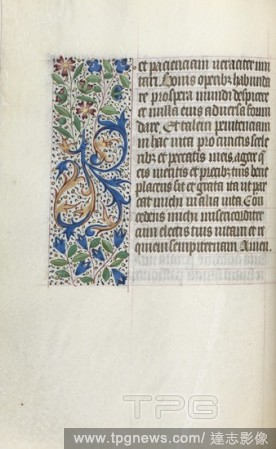 et pacienciam veraciter imi
tari. Bonis operibz habunda
re prospera mundi despicere
et nulla eius adversa formi
dare. Et talem penitenciam
in hac vita pro cunctis scele
ribz et peccatis meis agere q
eis meritis et precibz tuis bene
placens sit et grata ita ut par
cat michi in alia vita. Con
cedens michi misericorditer
cum electis tuis vitam et re
quiem sempiternam. Amen.
TPG
www.tpgnews.com/ 達志影像